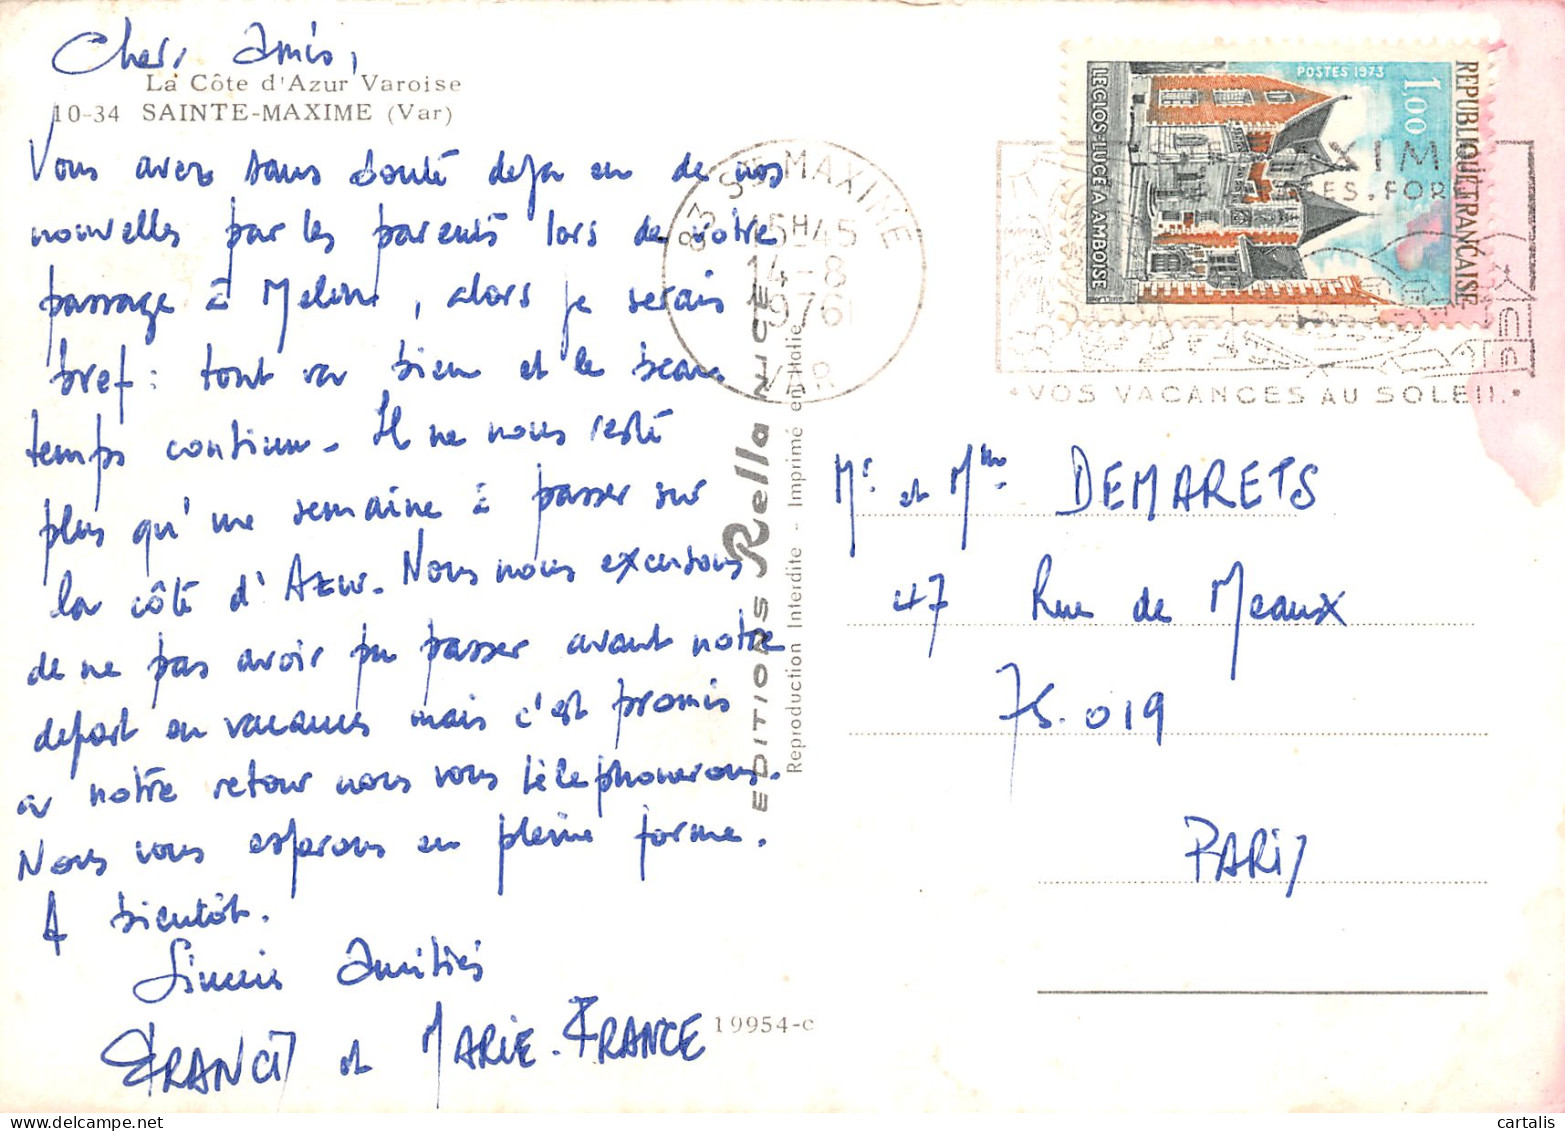 Chers Amis,
La Côte d'Azur Varoise
10-34 SAINTE-MAXIME (Var)
Vous avez sans doute deja eu de nos
nouvelles par les parents lors de votre
passage à Melun, alors je serais
bref : tout va bien et le beau
temps continue. Il ne nous reste
plus qu'une semaine à passer sur
la côte d'Azur. Nous nous excusons
de ne pas avoir pu passer avant notre
depart en vacances mais c'est promis
a notre retour nous vous téléphonerons.
Nous vous esperons en pleine forme.
A bientôt.
Sincères Amitiés
FRANCIS et MARIE-FRANCE
EDITIONS Rella NICE
Reproduction Interdite - Imprimé en Italie
19954-c
83 STE MAXIME
15H45
14-8
1976
VAR
POSTES 1973
1,00
REPUBLIQUE FRANCAISE
LE CLOS-LUCÉ A AMBOISE
XIM
ES.FOR
•VOS VACANCES AU SOLEIL•
Mr et Mme DEMARETS
47 Rue de Meaux
75.019
PARIS
cartalis